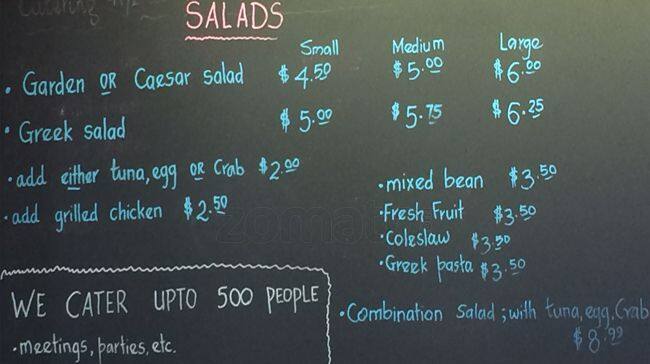 Catering
SALADS
Small Medium Large
• Garden OR Caesar salad $4.50 $5.00 $6.00
• Greek salad $5.00 $5.75 $6.25
• add either tuna, egg OR Crab $2.00
• add grilled chicken $2.50
• mixed bean $3.50
• Fresh Fruit $3.50
• Coleslaw $3.50
• Greek pasta $3.50
zomato
WE CATER UPTO 500 PEOPLE
• meetings, parties, etc.
• Combination Salad; with tuna, egg, Crab
$8.99